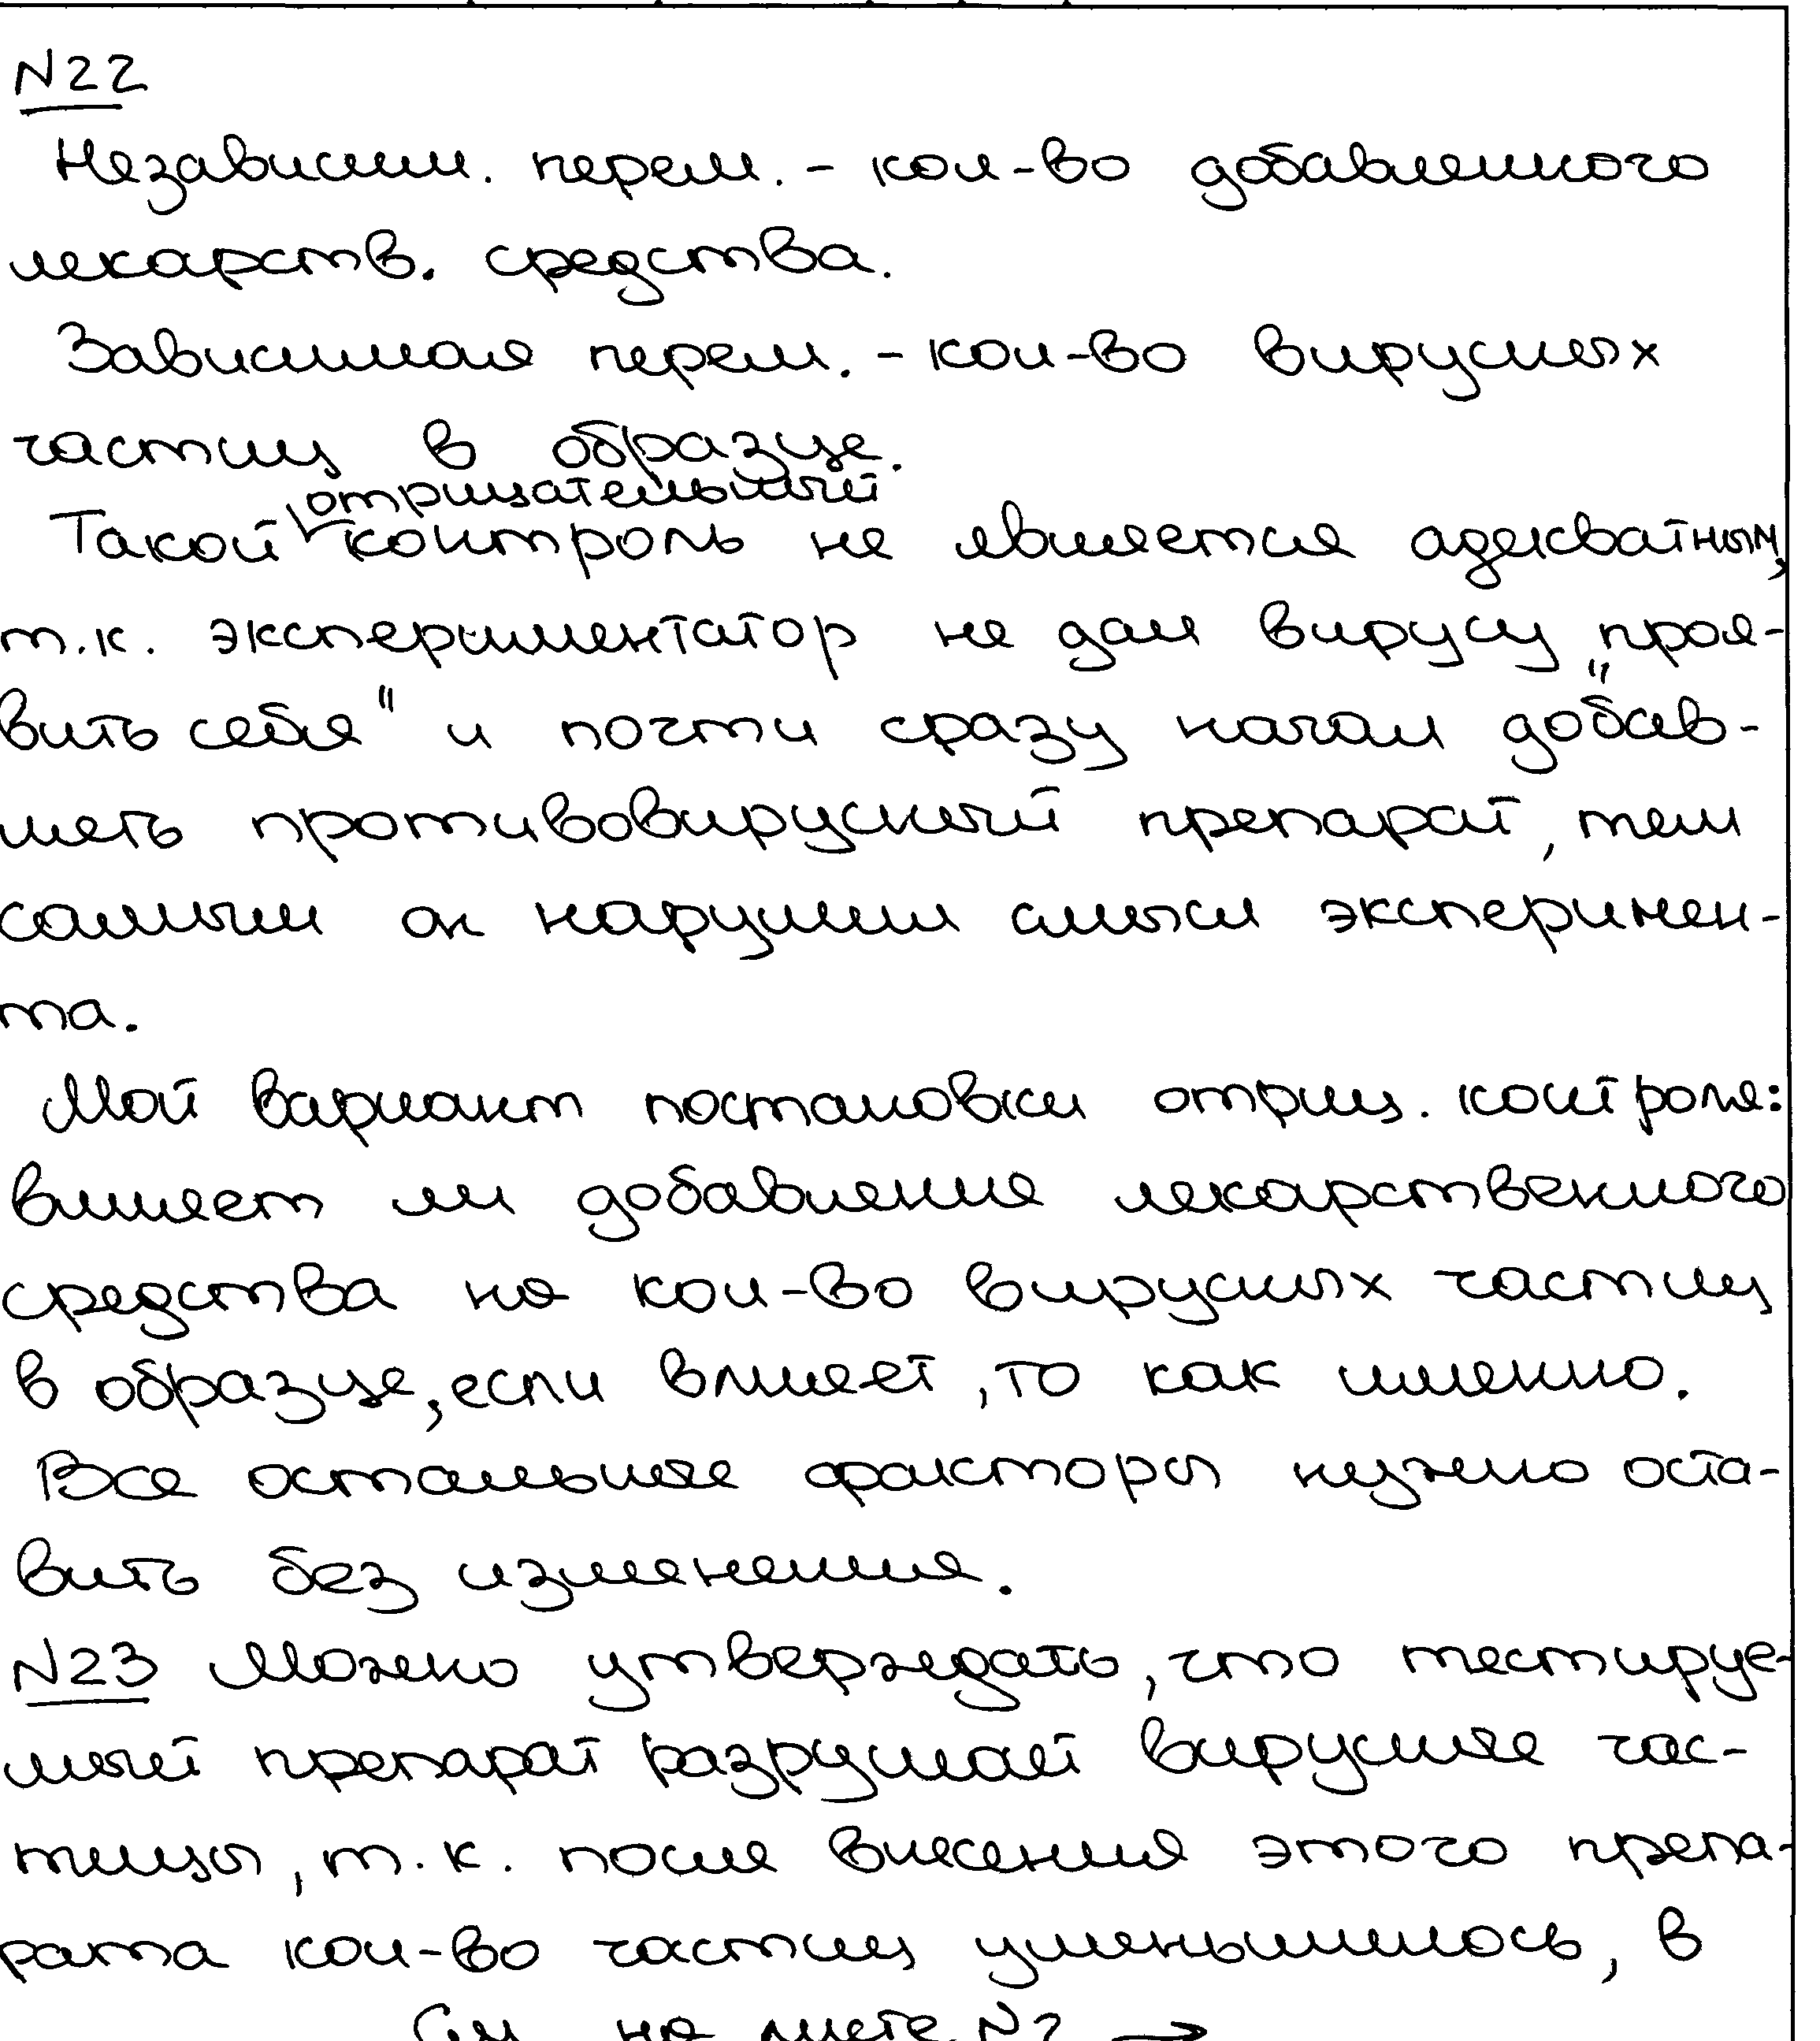 N22
Независим. перем. - кол-во добавленного
лекарств. средства.
Зависимая перем. - кол-во вирусных
частиц в образце.
отрицательный
Такой контроль не является адекватным,
т.к. экспериментатор не дал вирусу „проя-
вить себя" и почти сразу начал добав-
лять противовирусный препарат, тем
самым он нарушил смысл эксперимен-
та.
Мой вариант постановки отриц. контроля:
влияет ли добавление лекарственного
средства на кол-во вирусных частиц
в образце, если влияет, то как именно.
Все остальные факторы нужно оста-
вить без изменения.
N23 Можно утверждать, что тестируе-
мый препарат разрушает вирусные час-
тицы, т.к. после внесения этого препа-
рата кол-во частиц уменьшилось, в
См на листе N2 →